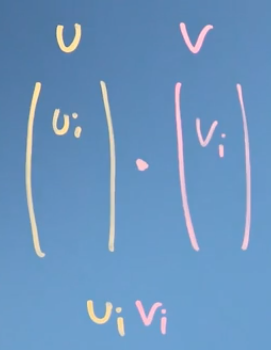 u v
( uᵢ ) · ( vᵢ )
uᵢ vᵢ